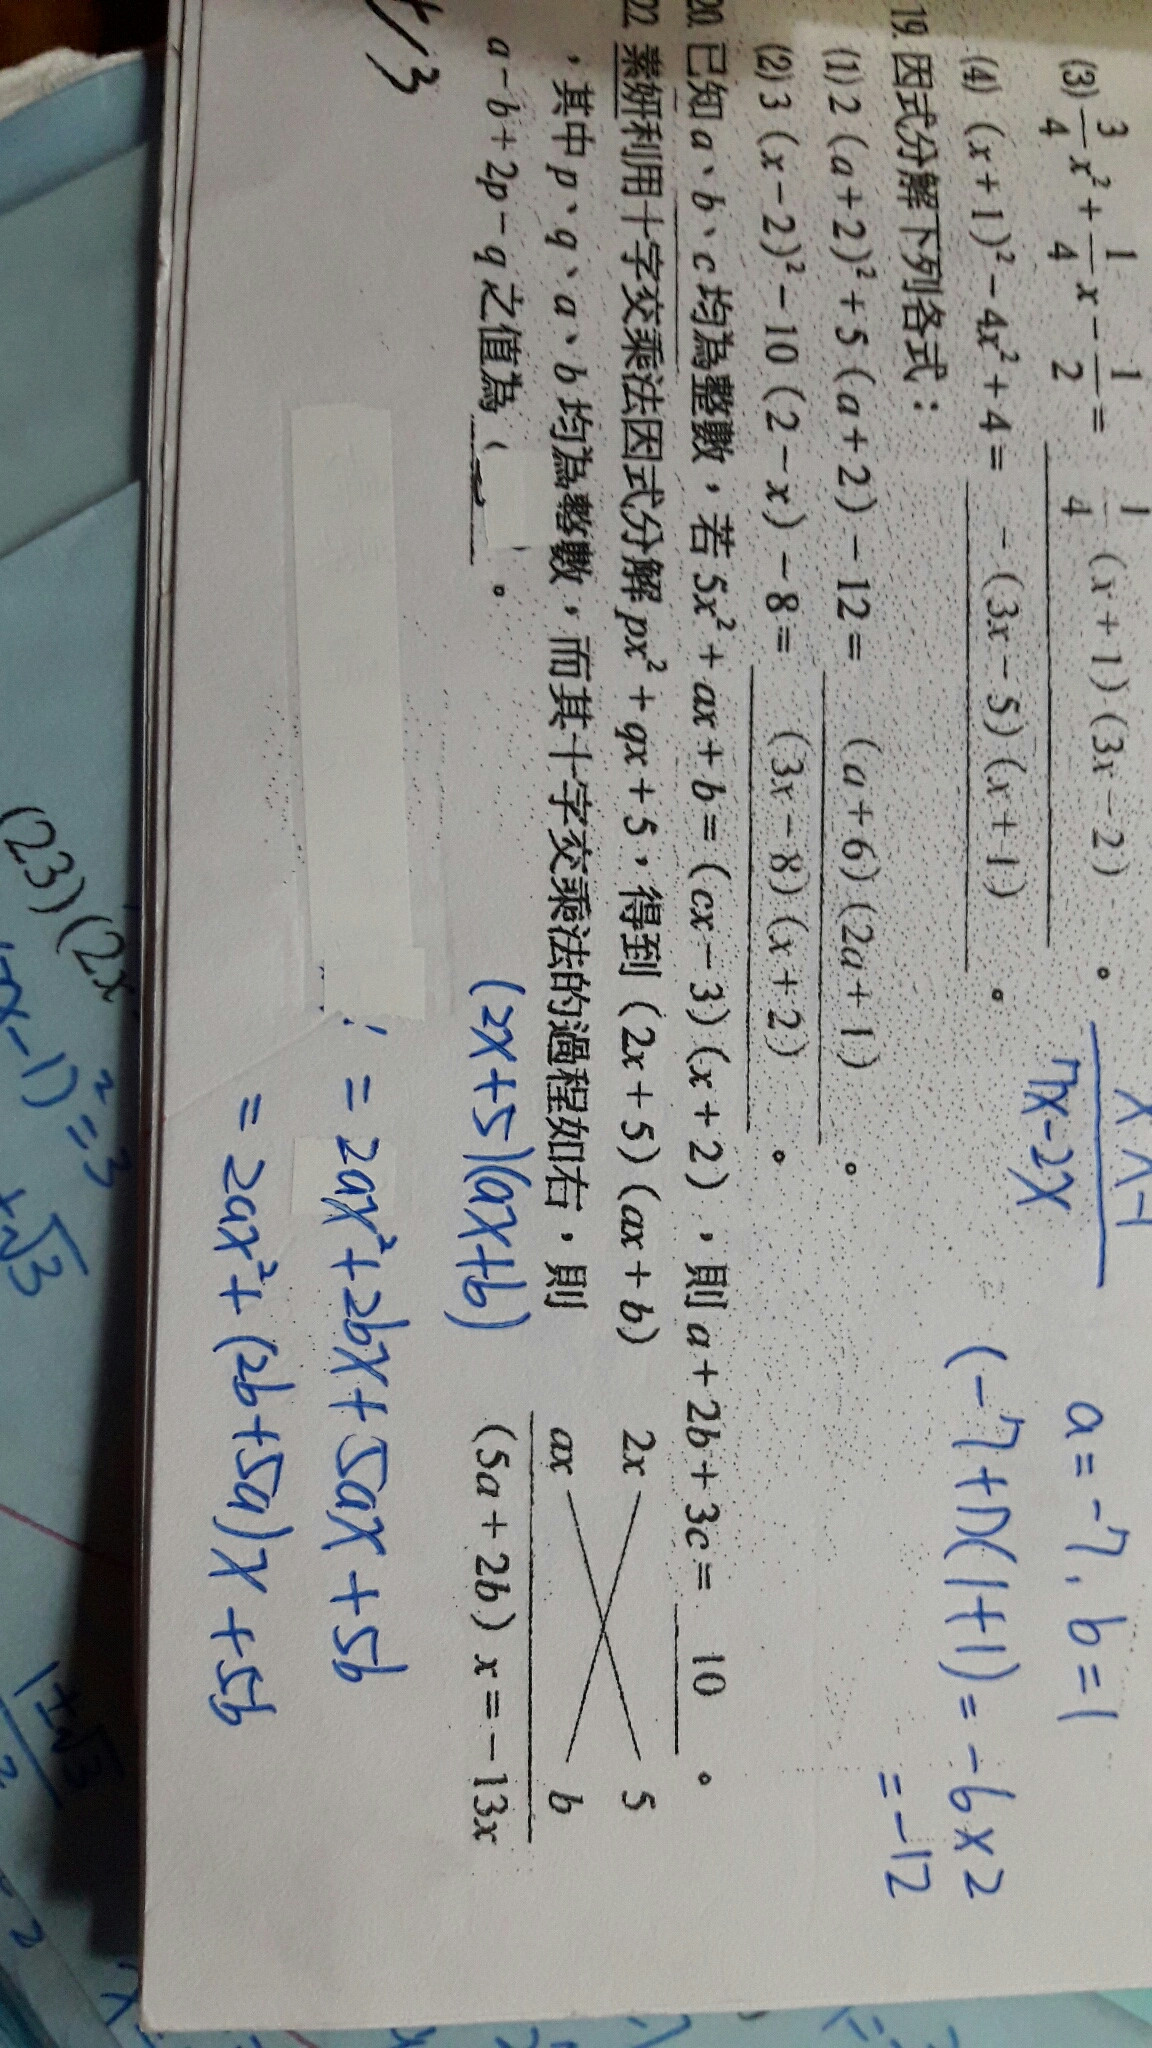 (3) 3/4 x² + 1/4 x − 1/2 = 1/4 (x+1)(3x−2) 。
(4) (x+1)² − 4x² + 4 = −(3x−5)(x+1) 。
19. 因式分解下列各式：
(1) 2(a+2)² + 5(a+2) − 12 = (a+6)(2a+1) 。
(2) 3(x−2)² − 10(2−x) − 8 = (3x−8)(x+2) 。
20. 已知 a、b、c 均為整數，若 5x² + ax + b = (cx−3)(x+2)，則 a+2b+3c = 10 。
22. 素妍利用十字交乘法因式分解 px² + qx + 5，得到 (2x+5)(ax+b)
，其中 p、q、a、b 均為整數，而其十字交乘法的過程如右，則
a−b+2p−q 之值為 。
2x 5
ax b
(5a+2b)x = −13x
7x−2x
a=−7, b=1
(−7+1)(1+1) = −6×2
= −12
(2x+5)(ax+b)
= 2ax² + 2bx + 5ax + 5b
= 2ax² + (2b+5a)x + 5b
(23) (2x
−1)² = 3
√3
1±√3